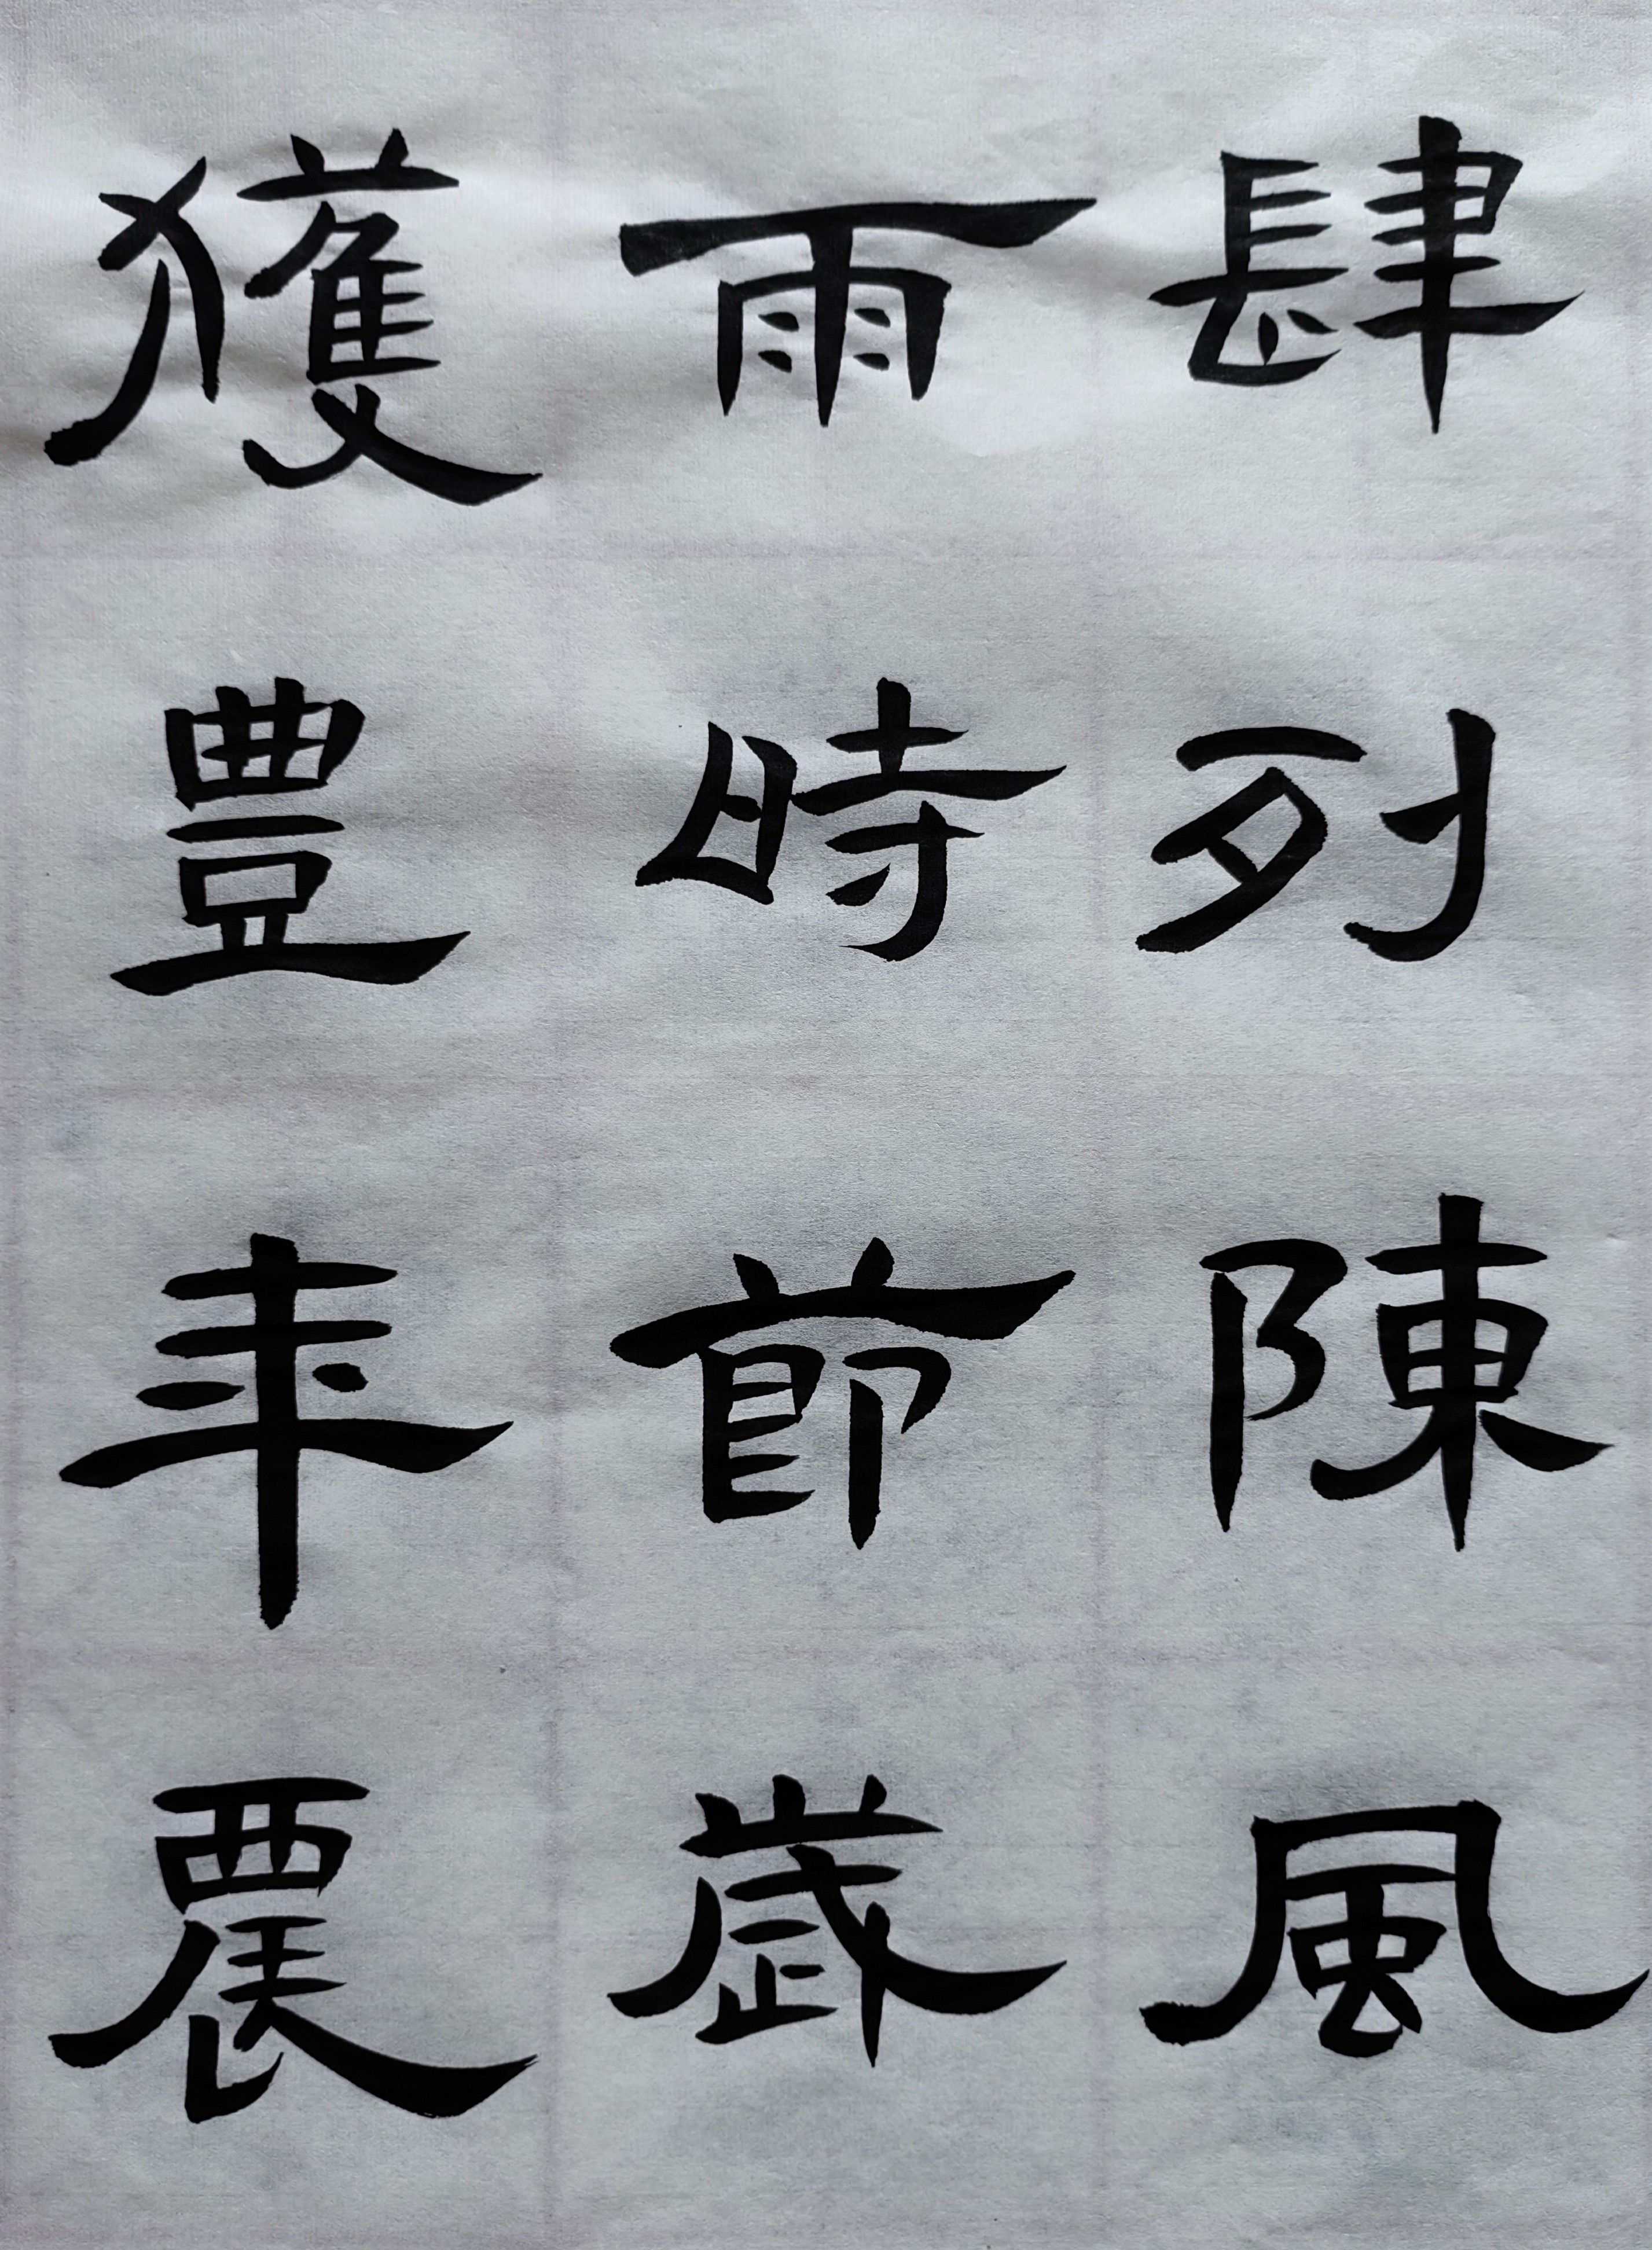 肆列陳風
雨時節歲
獲豐年農